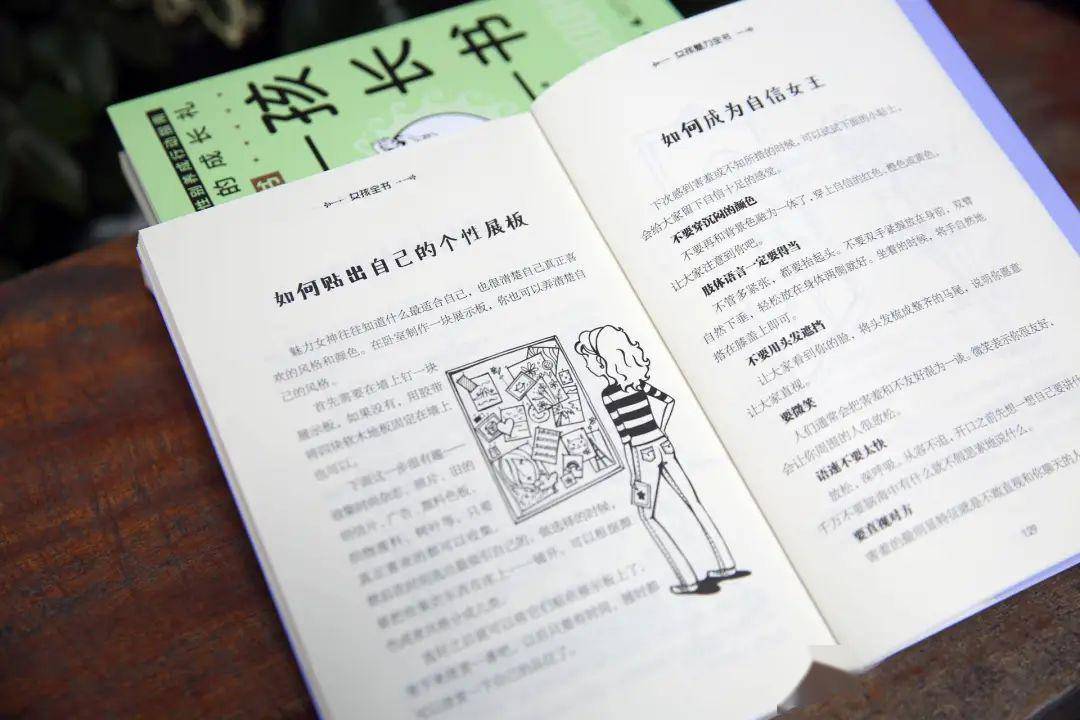 孩长书
的成长礼
女孩全书
如何贴出自己的个性展板
魅力女神往往知道什么最适合自己，也很清楚自己真正喜
欢的风格和颜色。在卧室制作一块展示板，你也可以弄清楚自
己的风格。
首先需要在墙上钉一块
展示板，如果没有，用胶带
将四块软木地板固定在墙上
也可以。
下面这一步很有趣——
收集时尚杂志、照片、旧的
明信片、广告、颜料色板、
织物废料、树叶等，只要
真正喜欢的都可以收集。
然后花时间选出最吸引自己的，做选择的时候，
要把收集的东西在床上一一铺开，可以根据颜
色或者风格分成几类。
选好之后就可以将它们贴在展示板上了，
女孩魅力全书
如何成为自信女王
下次感到害羞或不知所措的时候，可以试试下面的小贴士，
会给大家留下自信十足的感觉。
不要穿沉闷的颜色
不要再和背景色融为一体了，穿上自信的红色、橙色或黄色，
让大家注意到你吧。
肢体语言一定要得当
不管多紧张，都要抬起头。不要双手紧握放在身前，双臂
自然下垂，轻松放在身体两侧就好。坐着的时候，将手自然地
搭在膝盖上即可。
不要用头发遮挡
让大家看到你的脸，将头发梳成整齐的马尾，说明你愿意
让大家直视。
要微笑
人们通常会把害羞和不友好混为一谈。微笑表示你很友好，
会让你周围的人很放松。
语速不要太快
放松，深呼吸。从容不迫，开口之前先想一想自己要讲什
千万不要脑海中有什么就不假思索地说什么。
要直视对方
害羞的最明显特征就是不敢直视和你聊天的人
129